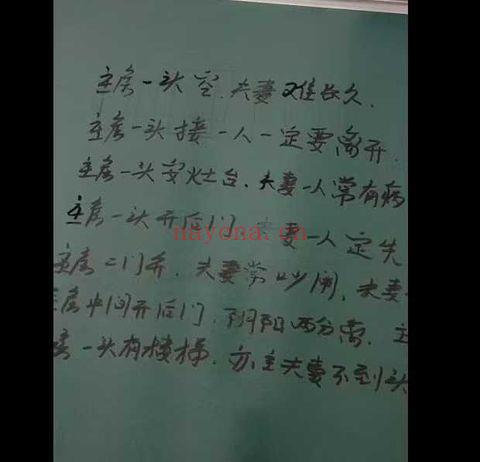 主房一头空.夫妻难长久.
主房一头接一人一定要离开.
主房一头安灶台.夫妻一人常有病
主房一头开后门.夫妻一人定失
nayona.cn
主房二门开.夫妻常吵闹.夫妻
房中间开后门.阴阳两分离.主
房一头有楼梯.亦主夫妻不到头